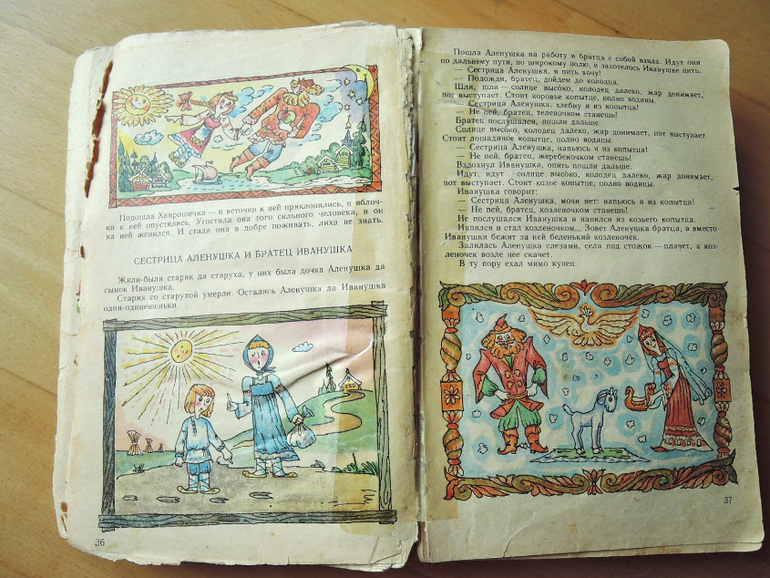 Подошла Хаврошечка — и веточки к ней приклонились, и яблоч-
ки к ней опустились. Угостила она того сильного человека, и он
на ней женился. И стала она в добре поживать, лиха не знать.
СЕСТРИЦА АЛЕНУШКА И БРАТЕЦ ИВАНУШКА
Жили-были старик да старуха, у них была дочка Аленушка да
сынок Иванушка.
Старик со старухой умерли. Остались Аленушка да Иванушка
одни-одинешеньки.
36
Пошла Аленушка на работу и братца с собой взяла. Идут они
по дальнему пути, по широкому полю, и захотелось Иванушке пить.
— Сестрица Аленушка, я пить хочу!
— Подожди, братец, дойдем до колодца.
Шли, шли — солнце высоко, колодец далеко, жар донимает,
пот выступает. Стоит коровье копытце, полно водицы.
— Сестрица Аленушка, хлебну я из копытца!
— Не пей, братец, теленочком станешь!
Братец послушался, пошли дальше.
Солнце высоко, колодец далеко, жар донимает, пот выступает.
Стоит лошадиное копытце, полно водицы.
— Сестрица Аленушка, напьюсь я из копытца!
— Не пей, братец, жеребеночком станешь!
Вздохнул Иванушка, опять пошли дальше.
Идут, идут — солнце высоко, колодец далеко, жар донимает,
пот выступает. Стоит козье копытце, полно водицы.
Иванушка говорит:
— Сестрица Аленушка, мочи нет: напьюсь я из копытца!
— Не пей, братец, козленочком станешь!
Не послушался Иванушка и напился из козьего копытца.
Напился и стал козленочком... Зовет Аленушка братца, а вместо
Иванушки бежит за ней беленький козленочек.
Залилась Аленушка слезами, села под стожок — плачет, а коз-
леночек возле нее скачет.
В ту пору ехал мимо купец.
37